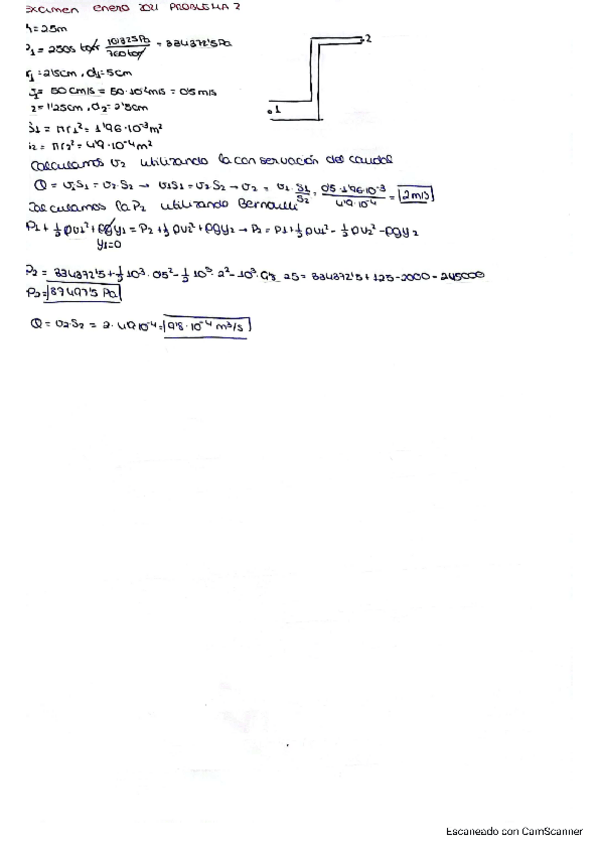 Examen enero 2021 PROBLEMA 2
h=25m
P1 = 2505 torr 101325Pa / 760 torr = 334372'5Pa
r1=2'5cm, d1=5cm
v1= 50cm/s = 50·10-2m/s = 0'5m/s
r2=1'25cm, d2=2'5cm
S1 = πr1² = 1'96·10-3m²
S2 = πr2² = 4'9·10-4m²
2
1
Calculamos v2 utilizando la conservación del caudal
Q = v1S1 = v2S2 → v1S1 = v2S2 → v2 = v1·S1/S2 = 0'5·1'96·10-3 / 4'9·10-4 = 2m/s
Calculamos la P2 utilizando Bernoulli
P1 + ½ρv1² + ρgy1 = P2 + ½ρv2² + ρgy2 → P2 = P1 + ½ρv1² - ½ρv2² - ρgy2
y1=0
P2 = 334372'5 + ½10³·0'5² - ½10³·2² - 10³·9'8·25 = 334372'5 + 125 - 2000 - 245000
P2 = 87497'5 Pa
Q = v2S2 = 2·4'9·10-4 = 9'8·10-4 m³/s
Escaneado con CamScanner